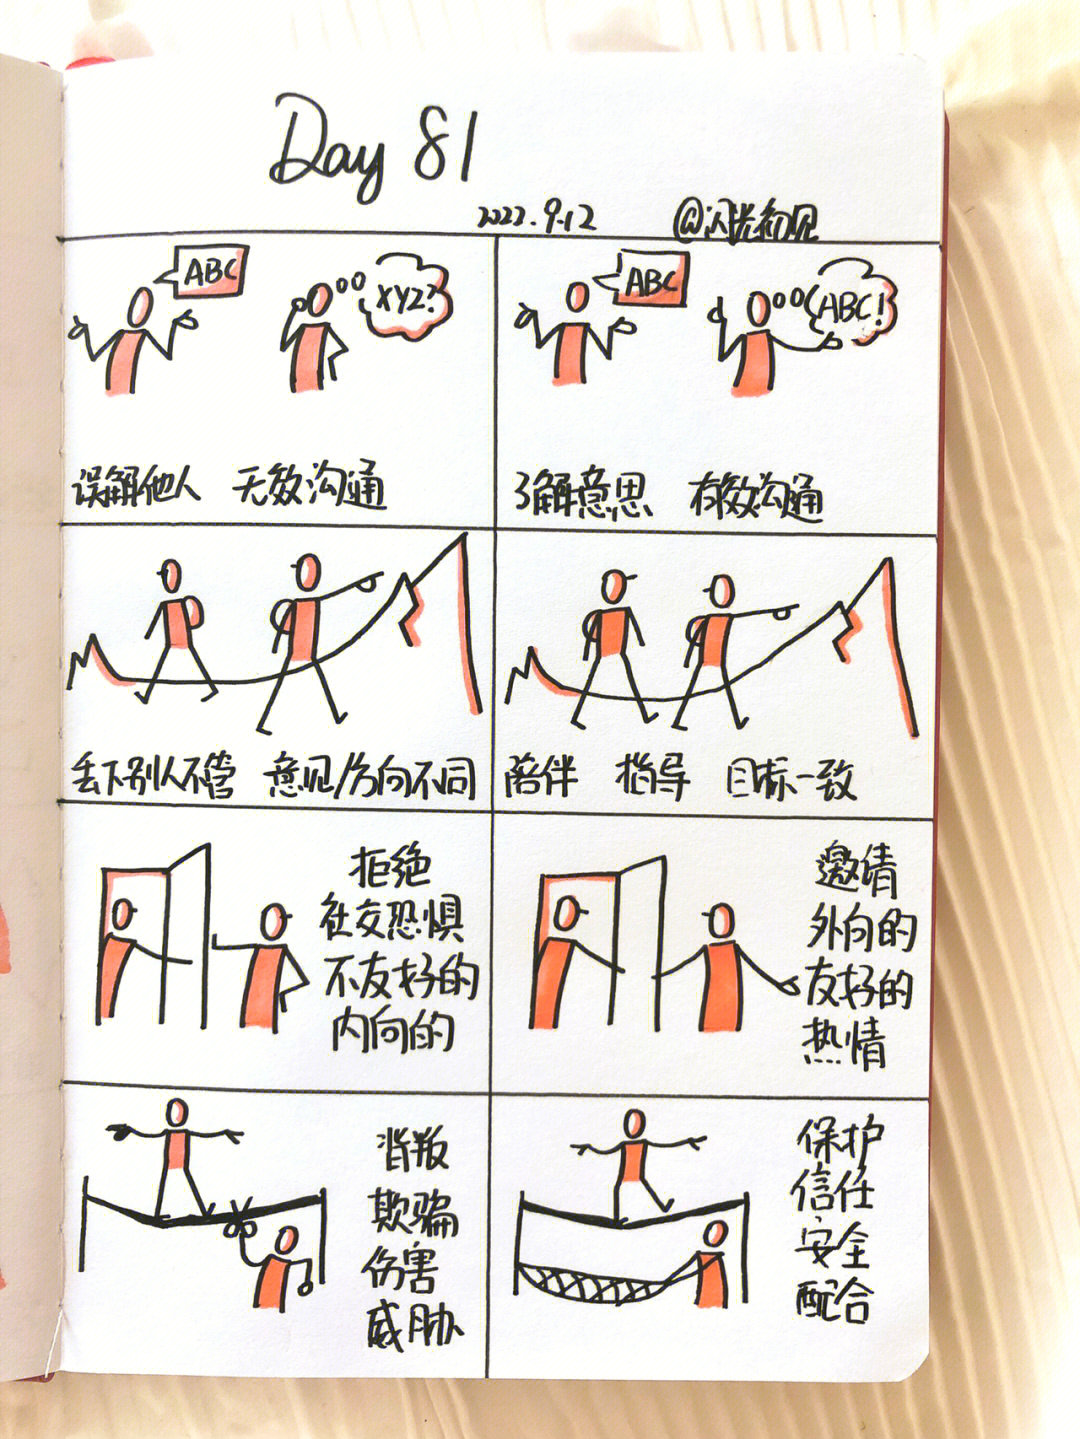 Day 81
2022.9.12 @闪光初见
ABC
XYZ?
误解他人 无效沟通
ABC
ABC!
了解意思 有效沟通
丢下别人不管 意见/方向不同
陪伴 指导 目标一致
拒绝
社交恐惧
不友好的
内向的
邀请
外向的
友好的
热情
背叛
欺骗
伤害
威胁
保护
信任
安全
配合